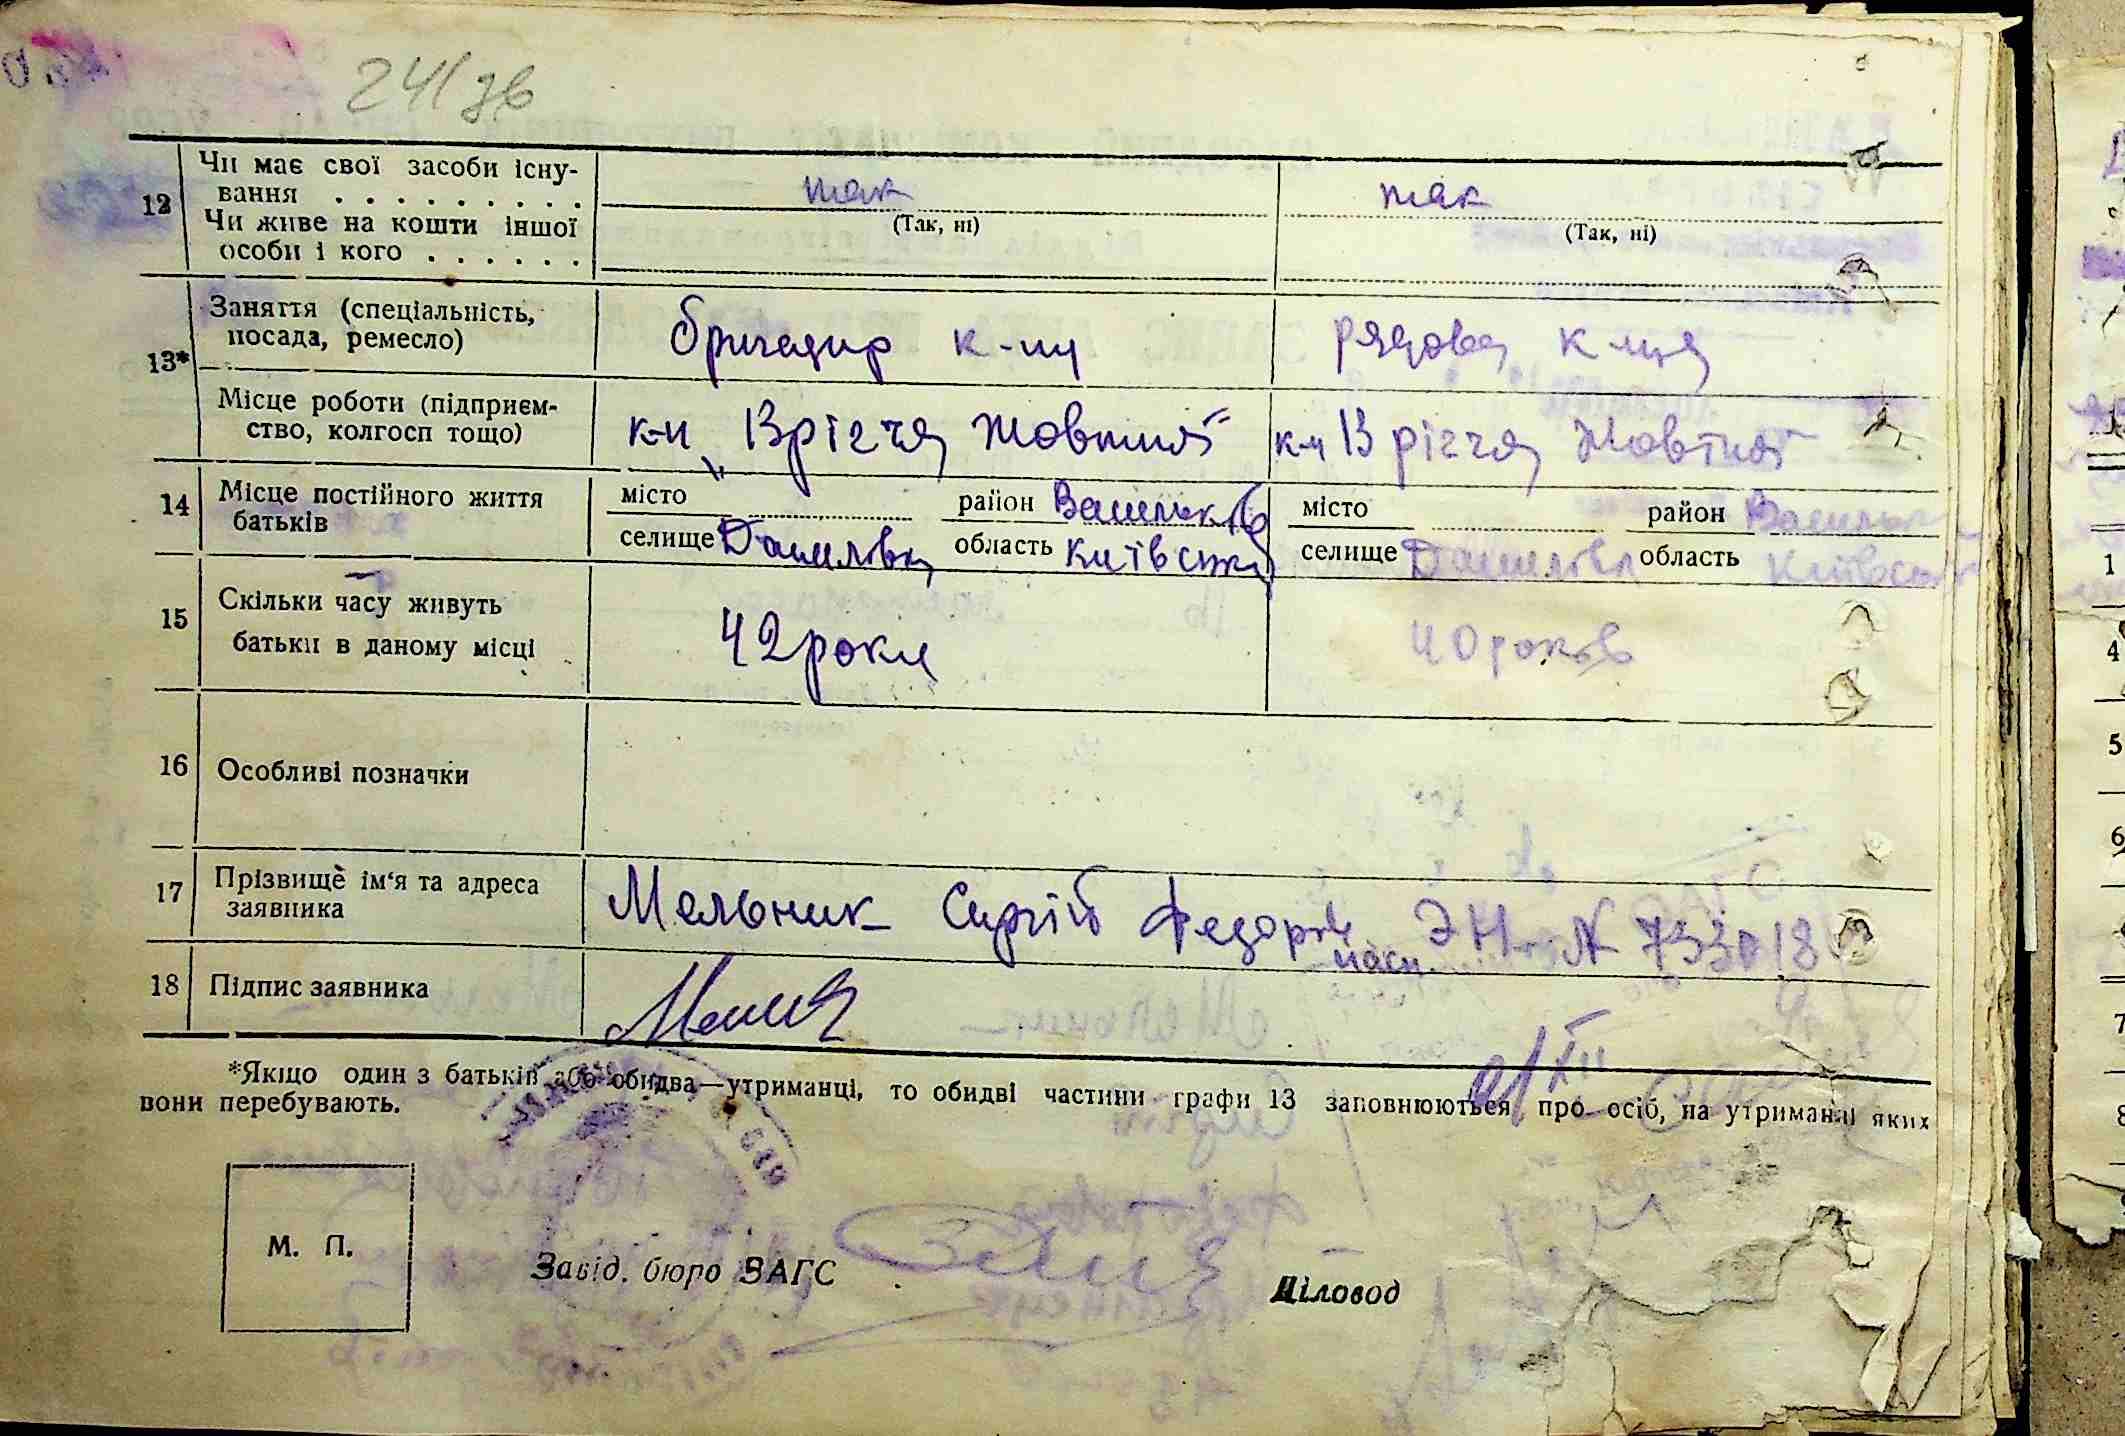 24/зв
12 Чи має свої засоби існу-
вання . . . . . . . . . . так так
(Так, ні) (Так, ні)
Чи живе на кошти іншої
особи і кого . . . . . .
13* Заняття (спеціальність,
посада, ремесло) бригадир к-пу рядова к-пу
Місце роботи (підприєм-
ство, колгосп тощо) к-п „13 річчя Жовтня" к-п 13 річчя Жовтня
14 Місце постійного життя
батьків
місто район Васильків місто район Васильк
селище Данилівка область Київська селище Данилівка область Київськ
15 Скільки часу живуть
батьки в даному місці 42 роки 40 років
16 Особливі позначки
17 Прізвище ім'я та адреса
заявника Мельник Сергій Федоров пасп. ЭН № 733018
18 Підпис заявника
*Якщо один з батьків або обидва—утриманці, то обидві частини графи 13 заповнюються про осіб, на утриманні яких
вони перебувають.
М. П.
Завід. бюро ЗАГС
Діловод
1
4
5
6
7
8